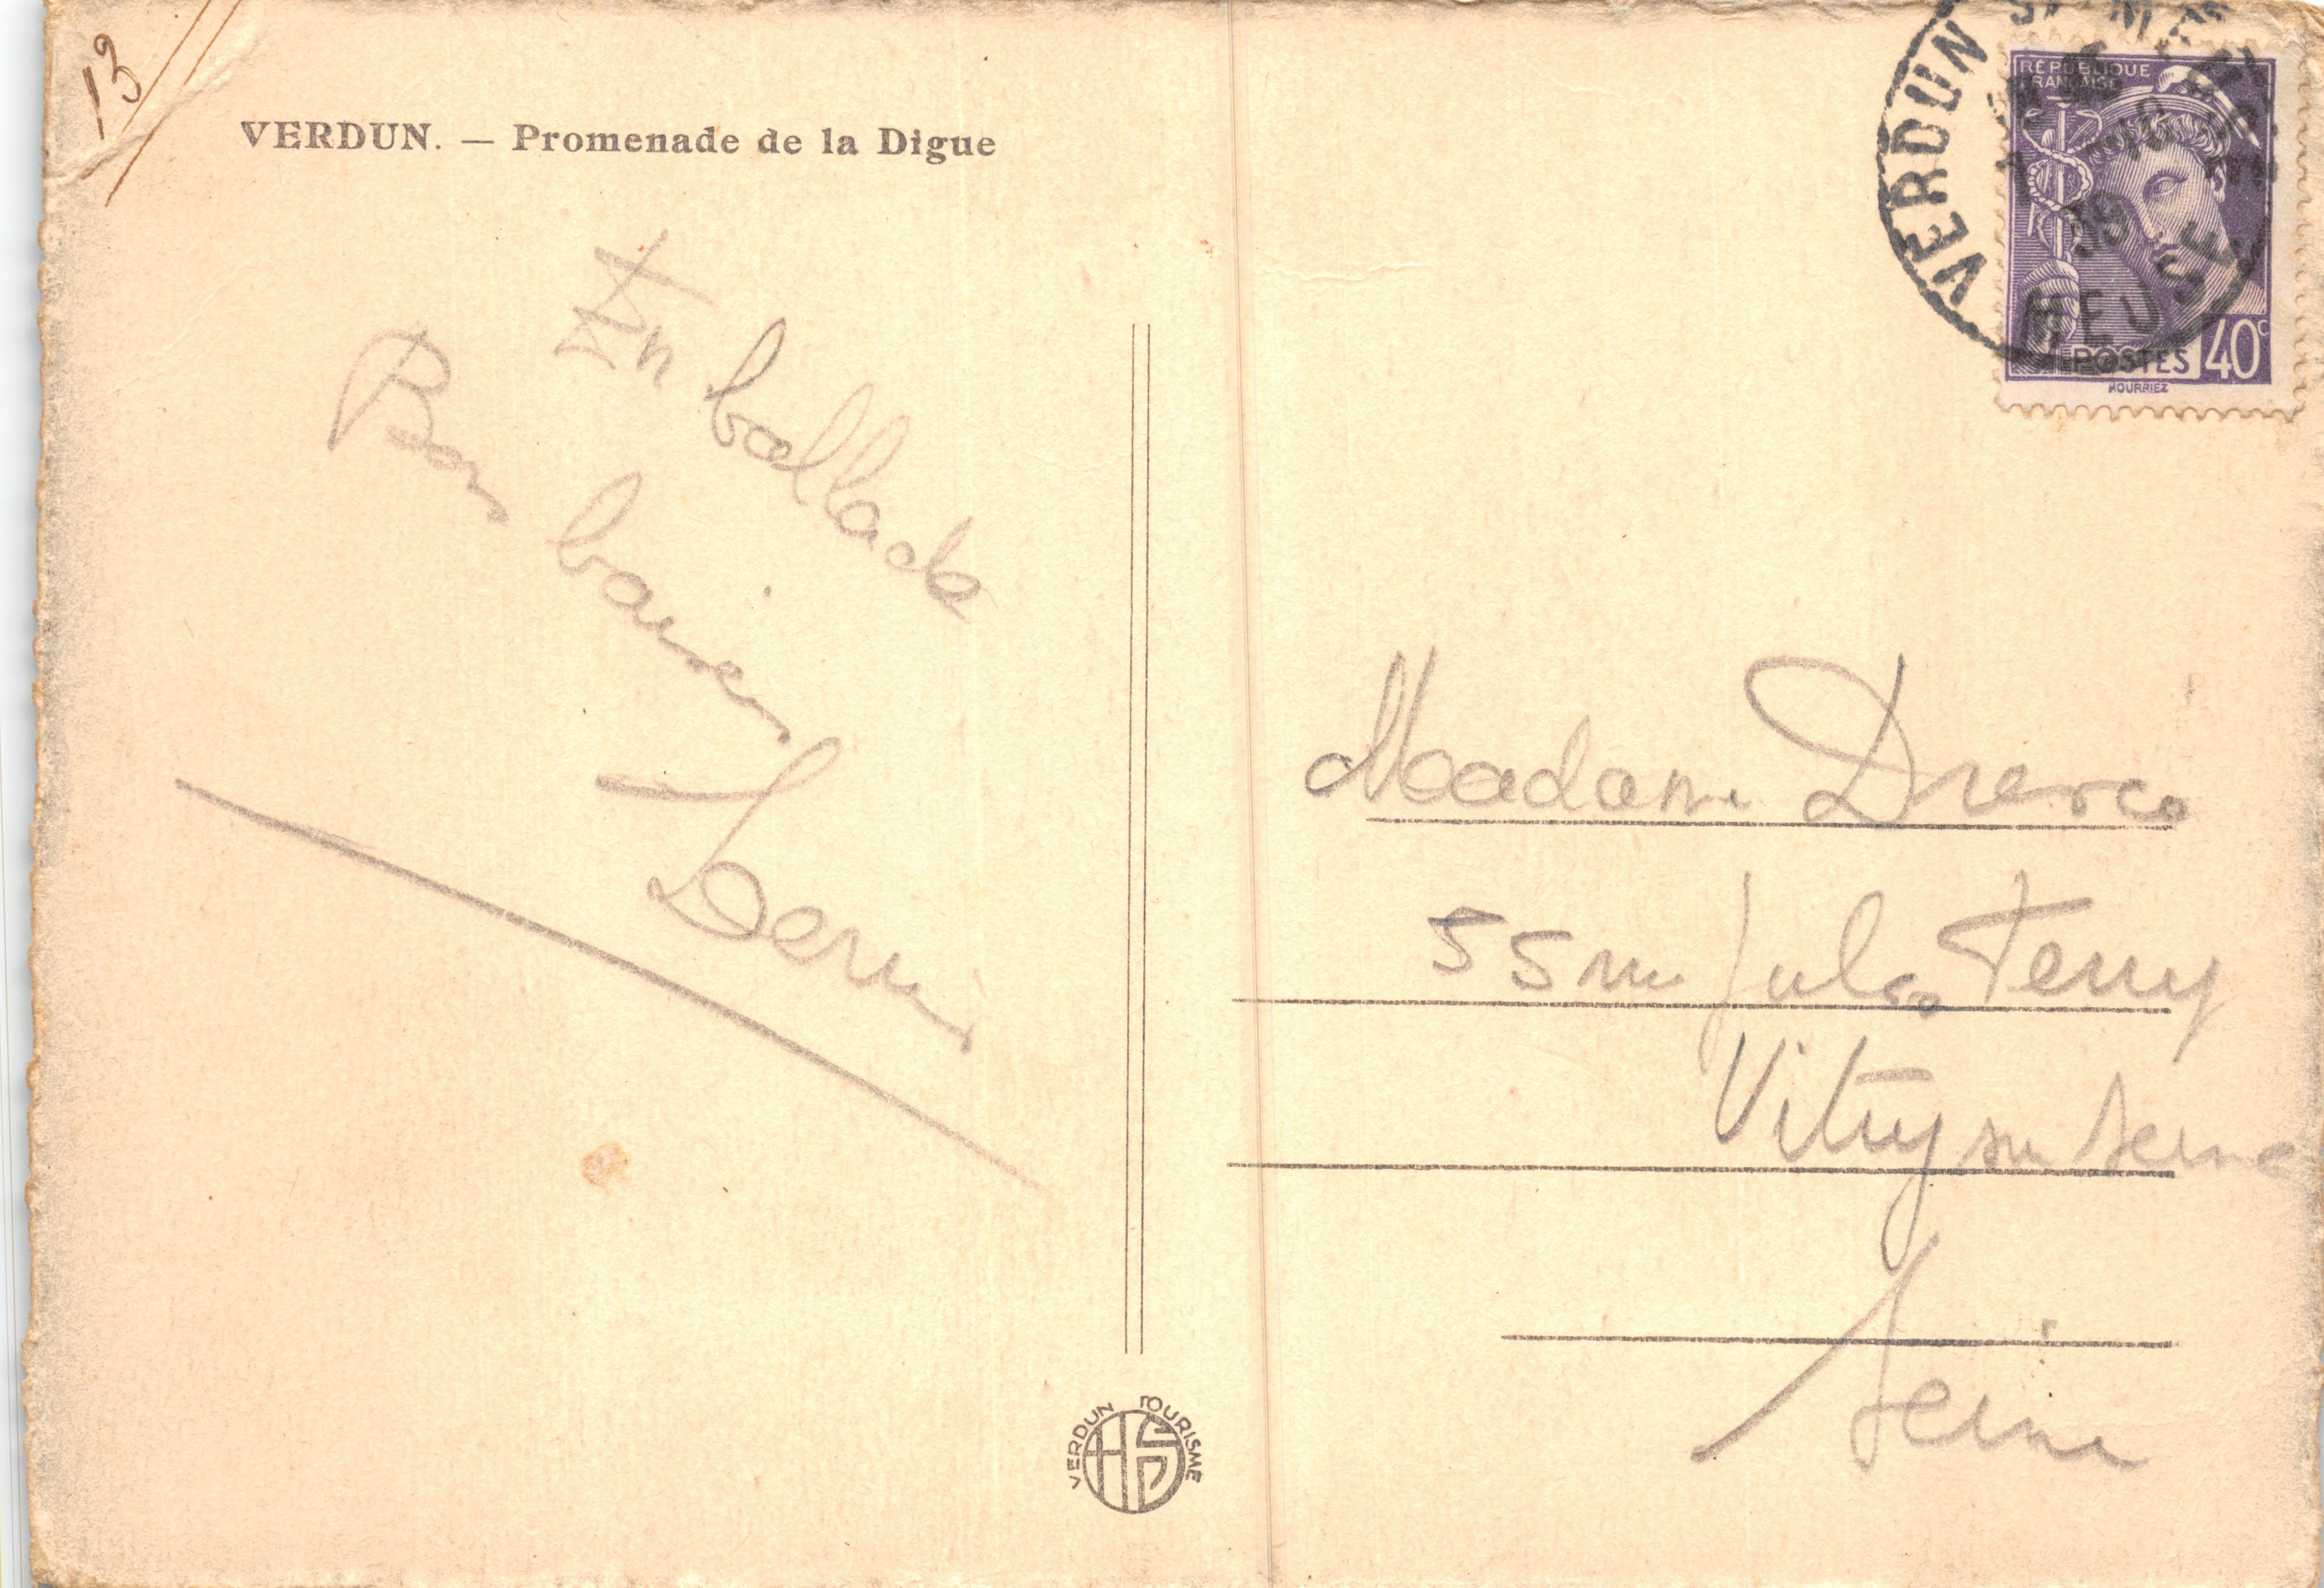 13
VERDUN. — Promenade de la Digue
En ballade
Bons baisers
VERDUN
MEUSE
39
RÉPUBLIQUE
FRANÇAISE
POSTES 40c
MOURRIEZ
Madame
55 rue Jules Ferry
Vitry sur Seine
Seine
VERDUN TOURISME
HS